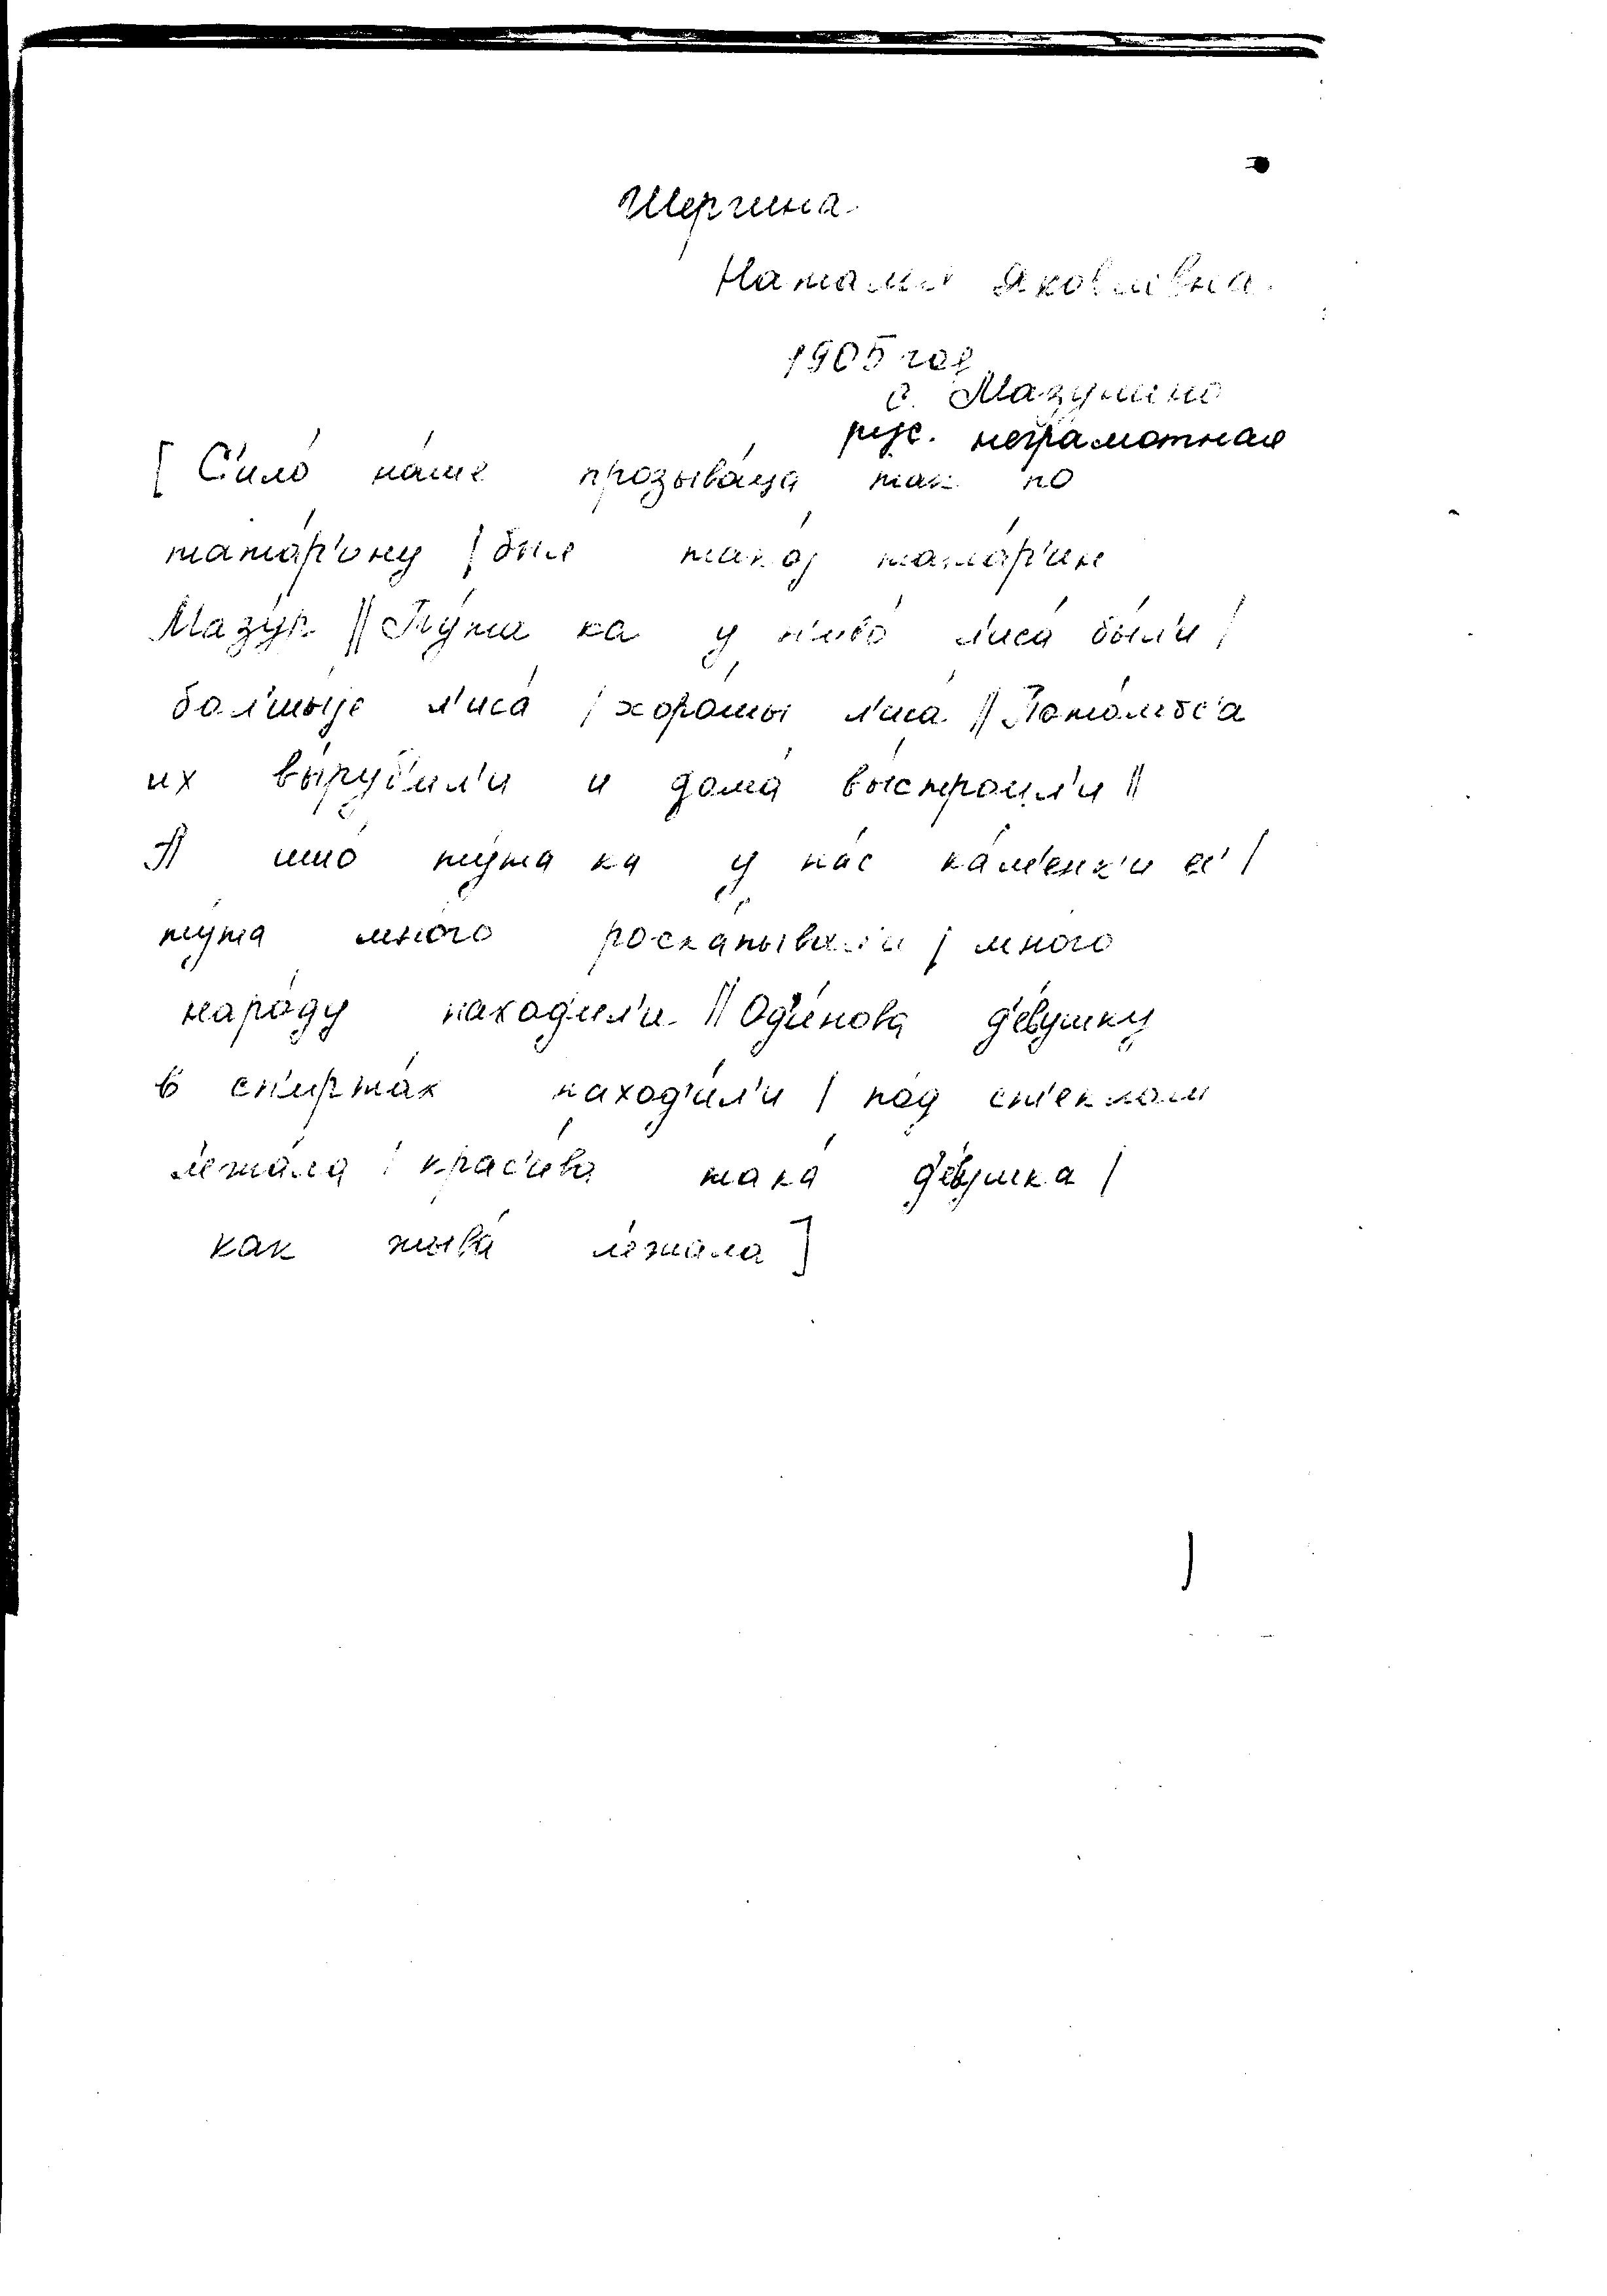 Шергина
Наталья Яковлевна
1905 год
с. Мазунино
рус. неграмотная
[ С'ило́ на́ше прозыва́ца так по
тата́р'ину | был тако́j тата́р'ин
Мазу́р || Ту́та ка у н'иво́ л'иса́ бы́л'и |
бол'шы́jе л'иса́ | хоро́шы л'иса́ ||
их вы́руб'ил'и и дома́ вы́строил'и ||
А што́ ту́та ка у на́с ка́м'енк'и е' |
ту́та мно́го роска́пывал'и | мно́го
наро́ду находи́л'и || Од'и́нова д'е́вушку
в сп'ирта́х наход'и́л'и | по́д ст'еклом
л'ежа́ла | крас'и́ва така́ д'е́вушка |
как жыва́ л'ежа́ла ]